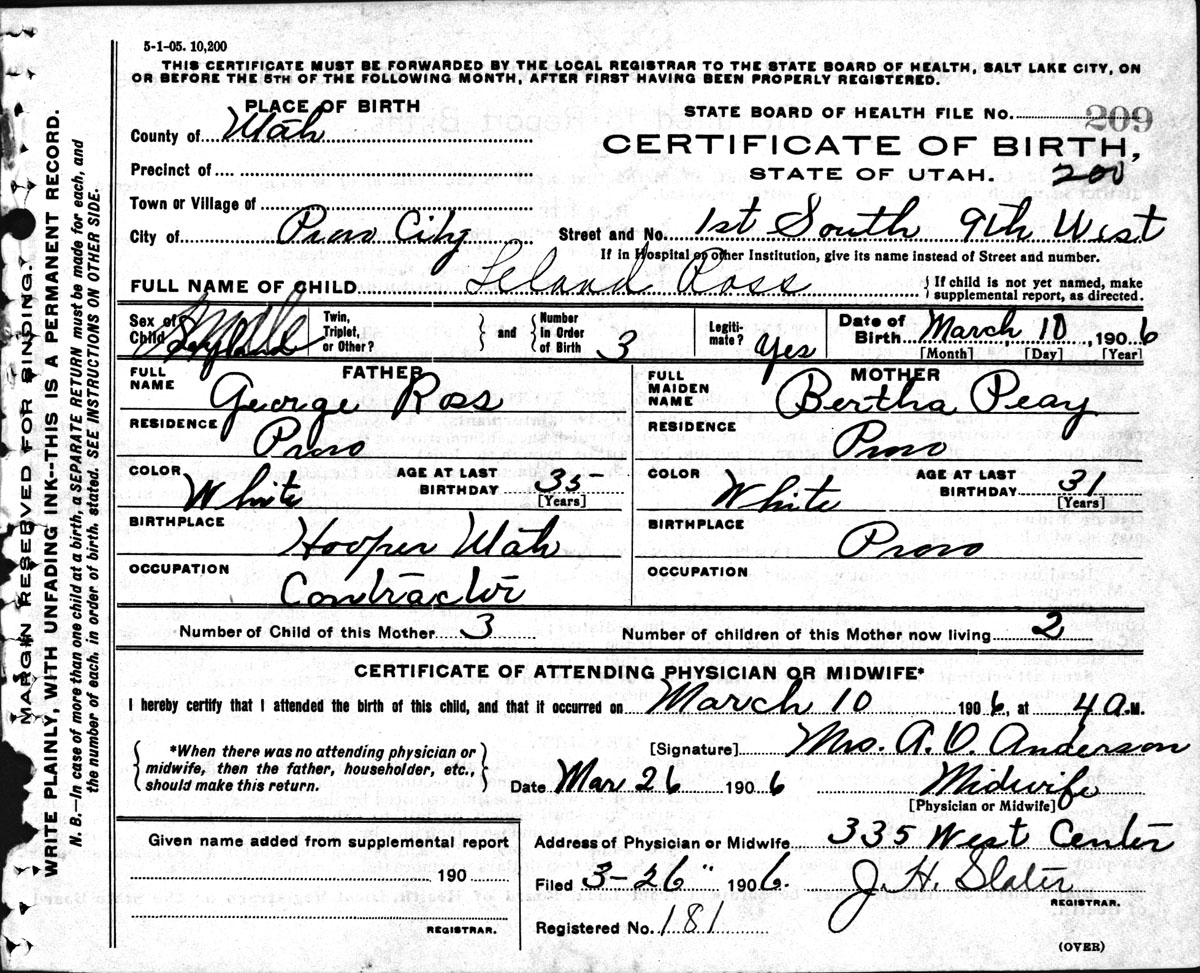 5-1-05. 10,200
THIS CERTIFICATE MUST BE FORWARDED BY THE LOCAL REGISTRAR TO THE STATE BOARD OF HEALTH, SALT LAKE CITY, ON
OR BEFORE THE 5TH OF THE FOLLOWING MONTH, AFTER FIRST HAVING BEEN PROPERLY REGISTERED.
MARGIN RESERVED FOR BINDING.
WRITE PLAINLY, WITH UNFADING INK--THIS IS A PERMANENT RECORD.
N. B.—In case of more than one child at a birth, a SEPARATE RETURN must be made for each, and
the number of each, in order of birth, stated. SEE INSTRUCTIONS ON OTHER SIDE.
PLACE OF BIRTH
County of Utah
Precinct of
Town or Village of
City of Provo City
STATE BOARD OF HEALTH FILE No. 209
CERTIFICATE OF BIRTH,
STATE OF UTAH. 200
Street and No. 1st South 9th West
If in Hospital or other Institution, give its name instead of Street and number.
FULL NAME OF CHILD Leland Ross { If child is not yet named, make
supplemental report, as directed.
Sex of Child Male
Twin, Triplet, or Other? } and { Number in Order of Birth 3
Legitimate? Yes
Date of Birth March, 10, 1906
[Month] [Day] [Year]
FATHER
FULL NAME George Ross
RESIDENCE Provo
COLOR White AGE AT LAST BIRTHDAY 35 [Years]
BIRTHPLACE Hooper Utah
OCCUPATION Contractor
MOTHER
FULL MAIDEN NAME Bertha Peay
RESIDENCE Provo
COLOR White AGE AT LAST BIRTHDAY 31 [Years]
BIRTHPLACE Provo
OCCUPATION
Number of Child of this Mother 3 Number of children of this Mother now living 2
CERTIFICATE OF ATTENDING PHYSICIAN OR MIDWIFE*
I hereby certify that I attended the birth of this child, and that it occurred on March 10 1906, at 4 A.M.
{ *When there was no attending physician or
midwife, then the father, householder, etc.,
should make this return. }
[Signature] Mrs. A. O. Anderson
Date Mar 26 1906 Midwife
[Physician or Midwife]
Given name added from supplemental report
190
REGISTRAR.
Address of Physician or Midwife 335 West Center
Filed 3-26" 1906. J. H. Slater
REGISTRAR.
Registered No. 181
(OVER)